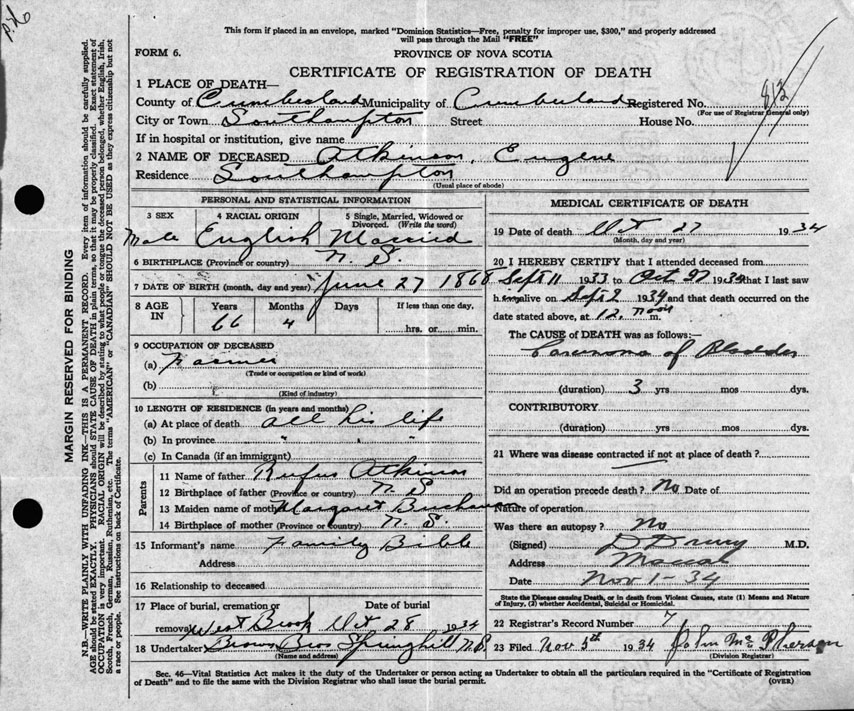 This form if placed in an envelope, marked "Dominion Statistics—Free, penalty for improper use, $300," and properly addressed
will pass through the Mail "FREE"
FORM 6.
PROVINCE OF NOVA SCOTIA
CERTIFICATE OF REGISTRATION OF DEATH
1 PLACE OF DEATH—
County of Cumberland Municipality of Cumberland Registered No. 812
(For use of Registrar General only)
City or Town Southampton Street House No.
If in hospital or institution, give name
2 NAME OF DECEASED Atkinson, Eugene
Residence Southampton
(Usual place of abode)
PERSONAL AND STATISTICAL INFORMATION
3 SEX 4 RACIAL ORIGIN 5 Single, Married, Widowed or
Divorced. (Write the word)
Male English Married
6 BIRTHPLACE (Province or country) N. S.
7 DATE OF BIRTH (month, day and year) June 27 1868
8 AGE IN Years Months Days If less than one day,
66 4 hrs. or min.
9 OCCUPATION OF DECEASED
(a) Farmer
(Trade or occupation or kind of work)
(b)
(Kind of industry)
10 LENGTH OF RESIDENCE (in years and months)
(a) At place of death all his life
(b) In province " " "
(c) In Canada (if an immigrant)
Parents
11 Name of father Rufus Atkinson
12 Birthplace of father (Province or country) N. S
13 Maiden name of mother Margaret
14 Birthplace of mother (Province or country) N. S.
15 Informant's name Family Bible
Address
16 Relationship to deceased
17 Place of burial, cremation or Date of burial
removal West Brook Oct 28 1934
18 Undertaker Brown Bros Springhill N.S.
(Name and address)
MEDICAL CERTIFICATE OF DEATH
19 Date of death Oct 27 1934
(Month, day and year)
20 I HEREBY CERTIFY that I attended deceased from
Sept 11 1933 to Oct 27 1934 that I last saw
h alive on Sept 2 1934 and that death occurred on the
date stated above, at 12 noon m.
The CAUSE OF DEATH was as follows:—
Carcinoma of Bladder
(duration) 3 yrs mos dys.
CONTRIBUTORY
(duration) yrs mos dys.
21 Where was disease contracted if not at place of death?
Did an operation precede death? No Date of
Nature of operation
Was there an autopsy? No
(Signed) D Drury M.D.
Address Maccan
Date Nov 1-34
State the Disease causing Death, or in death from Violent Causes, state (1) Means and Nature
of Injury, (2) whether Accidental, Suicidal or Homicidal.
22 Registrar's Record Number 7
23 Filed Nov 5th 1934 John McPherson
(Division Registrar)
Sec. 46—Vital Statistics Act makes it the duty of the Undertaker or person acting as Undertaker to obtain all the particulars required in the "Certificate of Registration
of Death" and to file the same with the Division Registrar who shall issue the burial permit.
(OVER)
MARGIN RESERVED FOR BINDING
N.B.—WRITE PLAINLY WITH UNFADING INK—THIS IS A PERMANENT RECORD. Every item of information should be carefully supplied.
AGE should be stated EXACTLY. PHYSICIANS should STATE CAUSE OF DEATH in plain terms, so that it may be properly classified. Exact statement of
OCCUPATION is very important. RACIAL ORIGIN will be described by stating to what people or tongue the deceased person belonged, whether English, Irish,
Scotch, French, German, Russian, Ruthenian, etc. The terms "AMERICAN" or "CANADIAN" SHOULD NOT BE USED as they express citizenship but not
a race or people. See instructions on back of Certificate.